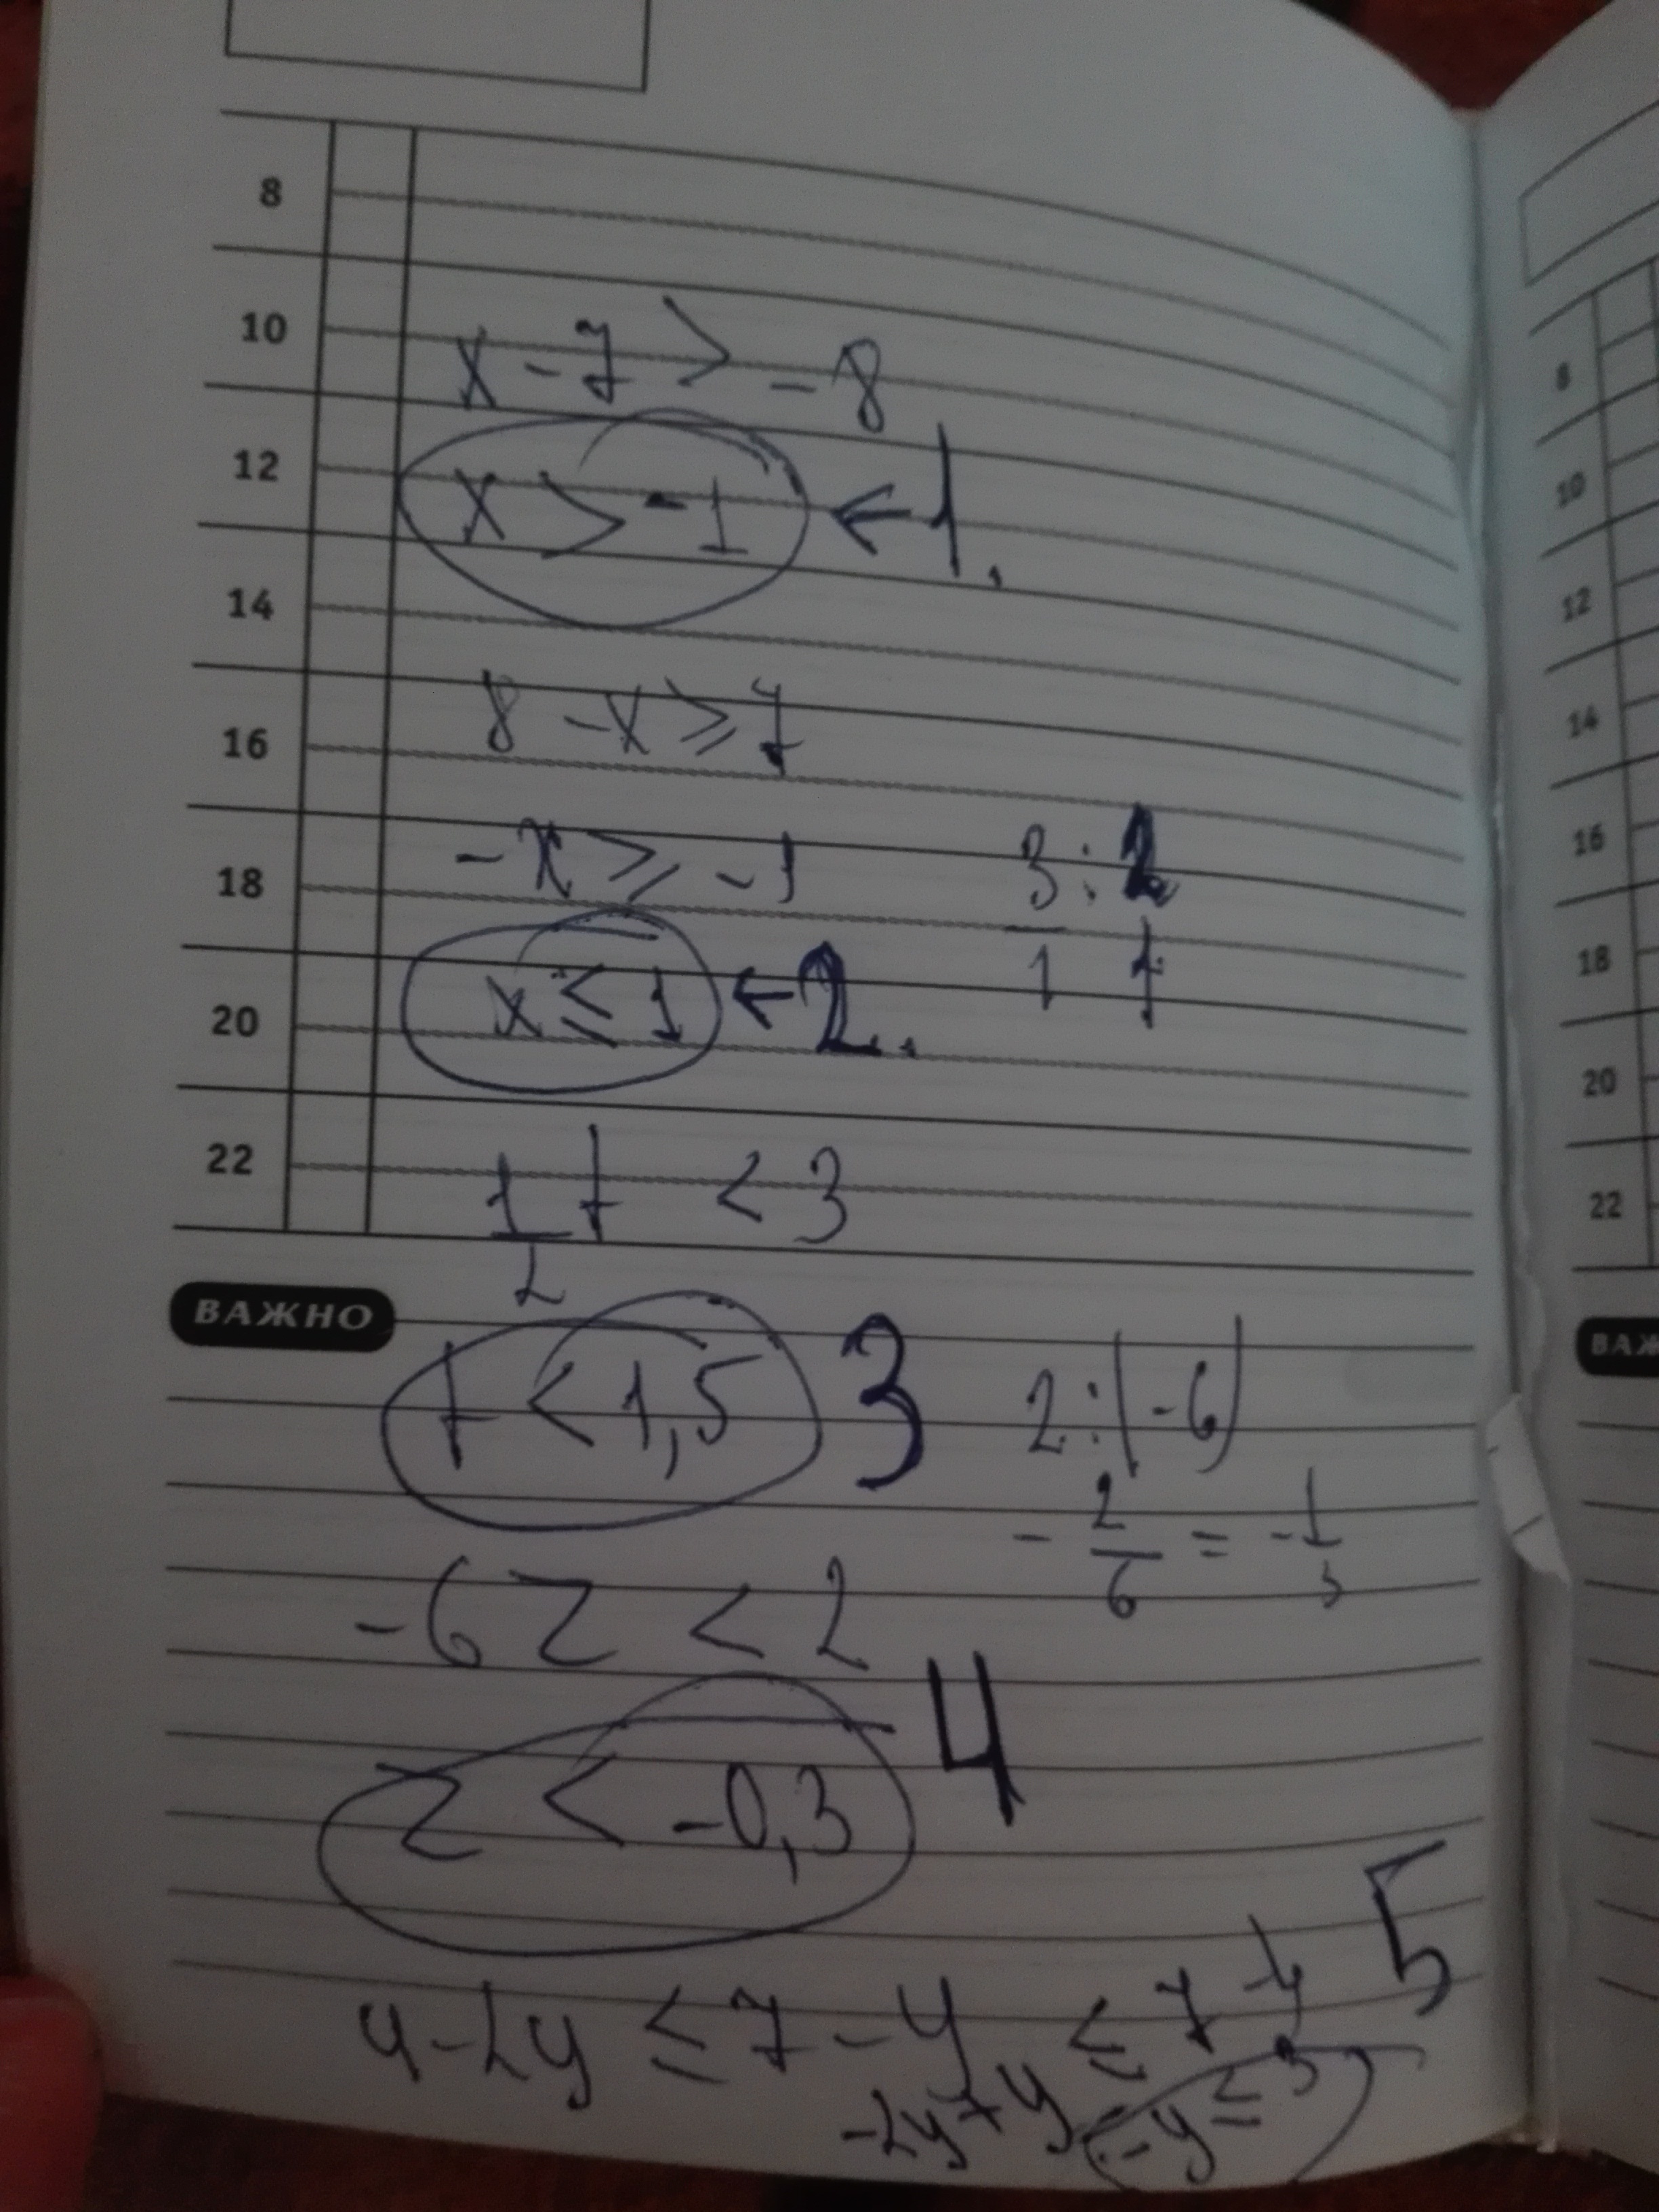 8
10
x - 7 > -8
12
x > -1 ← 1.
14
8 - x ≥ 7
16
-x ≥ -1
3 : 1/2
18
x ≤ 1 ← 2.
20
1/2 t < 3
22
ВАЖНО
t < 1,5 3
2 : (-6)
- 2/6 = - 1/3
-6z < 2
z < -0,3 4
5
4 - 2y ≤ 7 - y
-2y + y ≤ 7 - 4
-y ≤ 3
8
10
12
14
16
18
20
22
ВАЖ